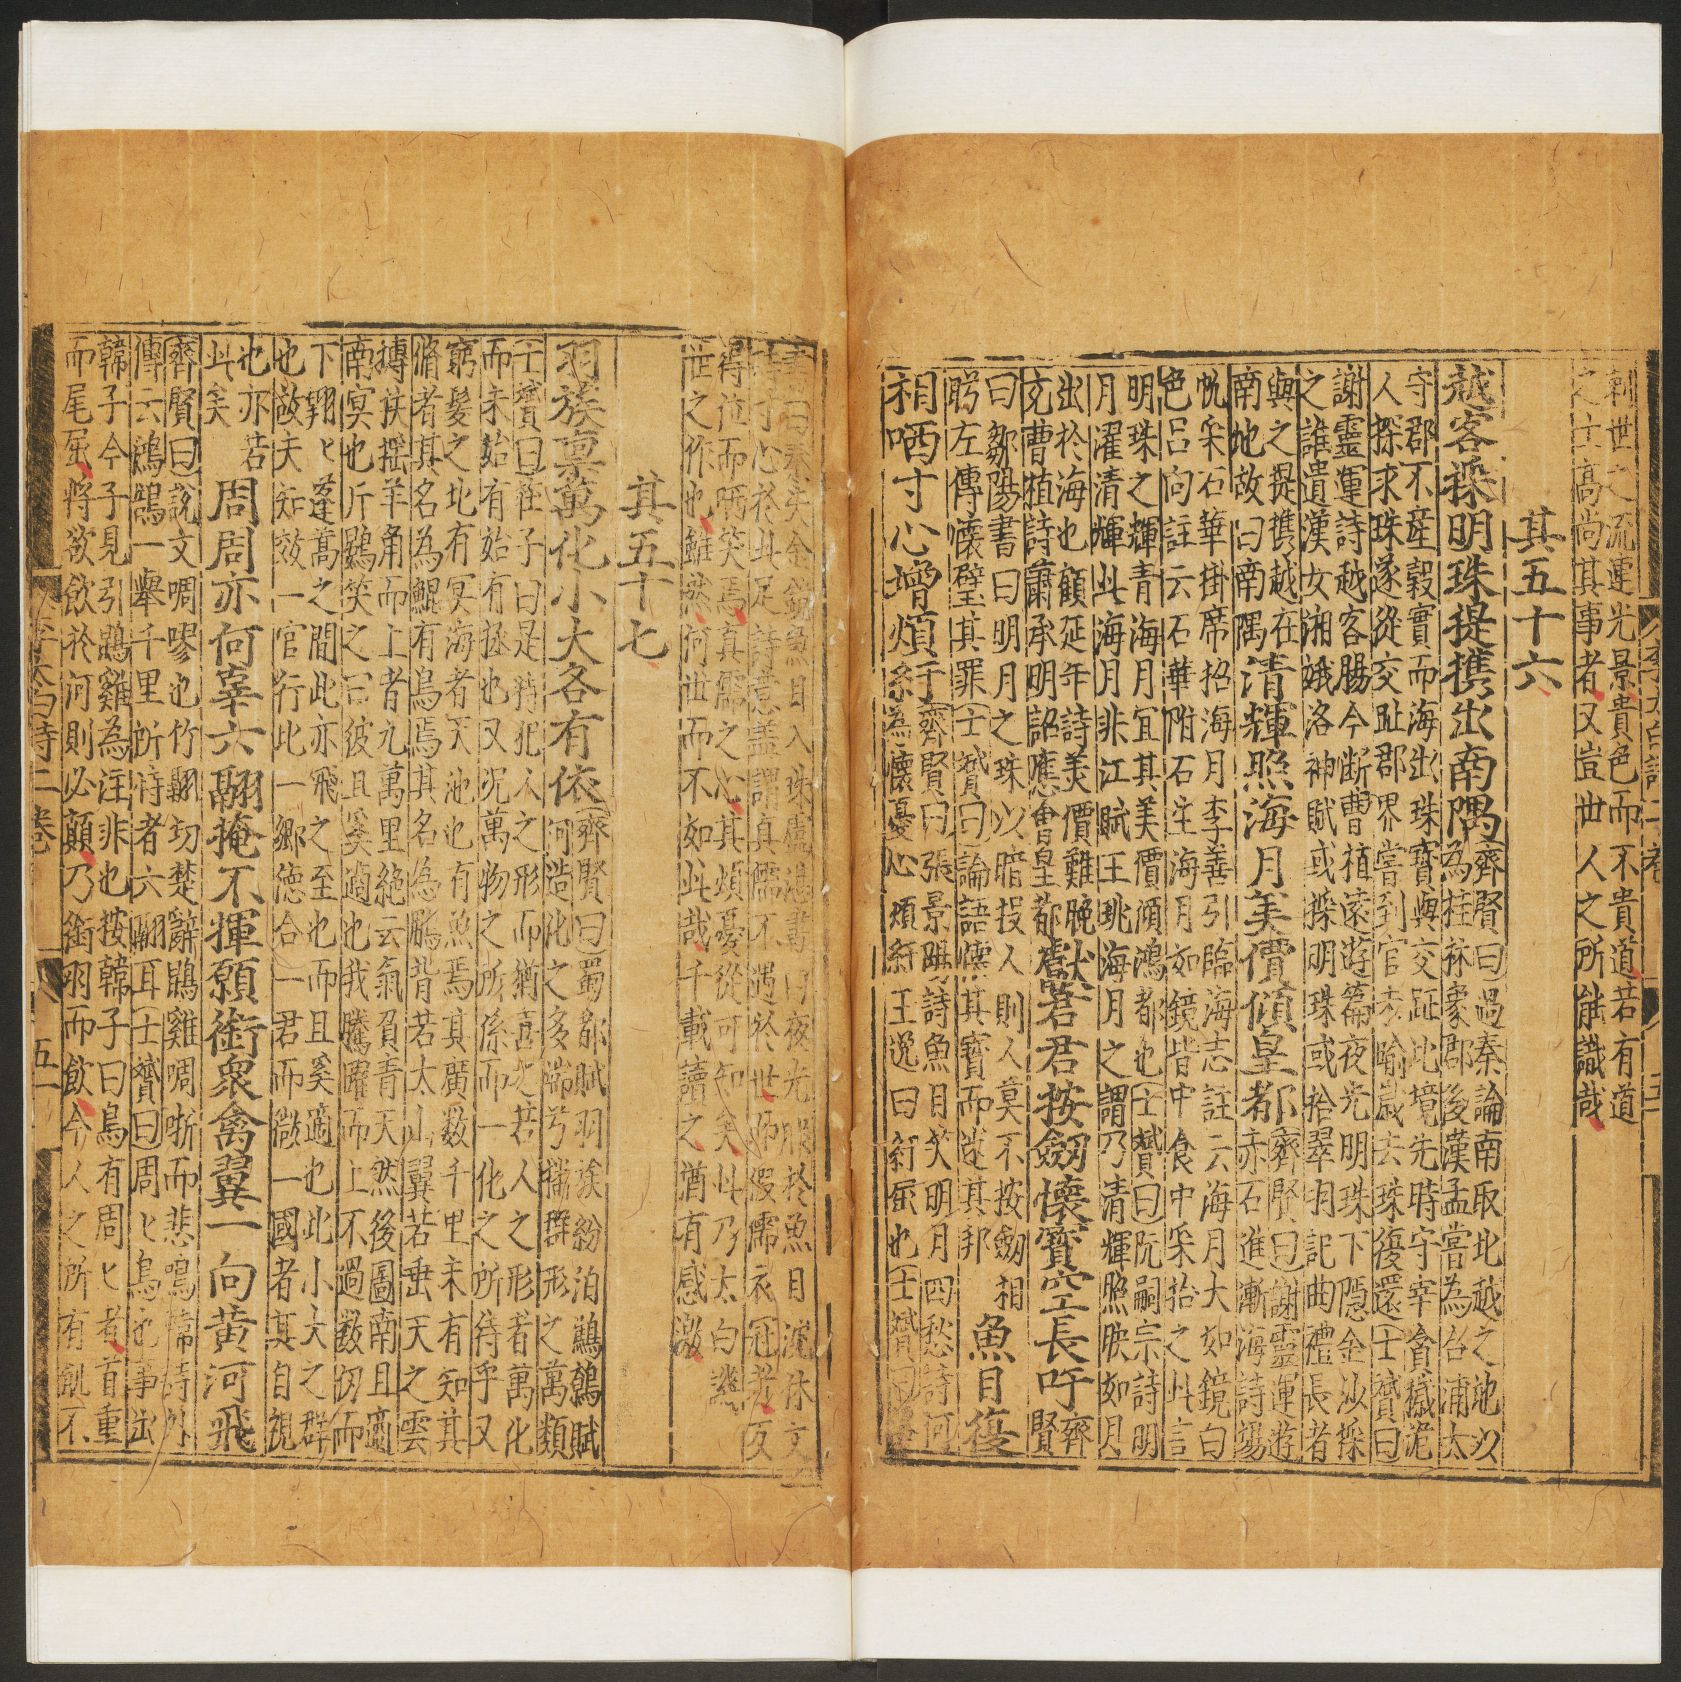 刺世之流連光景貴色而不貴道若有道
之士高尚其事者又豈世人之所能識哉
其五十六
越客採明珠提携出南隅
齊賢曰過秦論南取北越之地以
為桂林象郡後漢孟嘗為合浦太
守郡不産穀實而海出珠寳與交趾比境先時守宰貪穢詭
人採求珠遂從交趾郡界嘗到官未踰歲去珠復還士贇曰
謝靈運詩越客腸今断曹植遠遊篇夜光明珠下隱金沙採
之誰遺漢女湘娥洛神賦或採明珠或拾翠羽記曲禮長者
與之提携越在
南地故曰南隅
清輝照海月美價傾皇都
齊賢曰謝靈運遊
赤石進漸海詩揚
帆采石華掛席招海月李善引臨海志註云海月大如鏡白
色呂向註云石華附石生海月如鏡皆中食中采拾之此言
明珠之輝青海月冝其美價傾鴻都也士贇曰阮嗣宗詩明
月濯清輝此海月非江賦王珧海月之謂乃清輝照映如月
出於海也顧延年詩美價難晚
克曹植詩謝承明詔應會皇都
獻君君按劔懷寳空長吁
齊
賢
曰鄒陽書曰明月之珠以暗投人則人莫不按劔相
眄左傳懷璧其罪士贇曰論語懷其寳而迷其邦
魚目復
相哂寸心增煩紆
齊賢曰張景陽詩魚目笑明月四愁詩何
為懷憂心煩紆王逸曰紆屈也士贇曰
書曰秦失金鏡魚目入珠盧諶書曰夜光眠於魚目沈休文
詩寸心於此足詩意盖謂真儒不遇於世而假儒衣冠者反
得位而哂笑焉真儒之心其煩憂從可知矣此乃太白譏
世之作也雖然何世而不如此哉千載讀之猶有感激
其五十七
羽族禀萬化小大各有依
齊賢曰蜀都賦羽族紛泊鷦鷯賦
何造化之多端兮播群形之萬類
士贇曰莊子曰是特犯人之形而猶喜之若人之形者萬化
而未始有極也又况萬物之所係而一化之所待乎又
窮髮之北有冥海者天池也有魚焉其廣数千里未有知其
脩者其名為鯤有鳥焉其名為鵬背若太山翼若垂天之雲
搏扶揺羊角而上者九萬里絶云氣負青天然後圖南且適
南冥也斥鷃笑之曰彼且奚適也我騰躍而上不過数仞而
下翱ヒ蓬蒿之間此亦飛之至也而且奚適也此小大之群
也故夫知效一官行比一鄉徳合一君而徵一國者其自視
也亦若
此矣
周周亦何辜六翮掩不揮願銜衆禽翼一向黄河飛
齊賢曰説文啁嘐也竹翻切楚辭鵾雞啁哳而悲鳴
傳云鴻鵠一舉千里所恃者六翮耳士贇曰周ヒ鳥也事出
韓子今子見引鵾雞為注非也按韓子曰鳥有周ヒ者首重
而尾屈將欲飲於河則必顛乃銜羽而飲今人之所有飢不
李太白詩二卷
五一